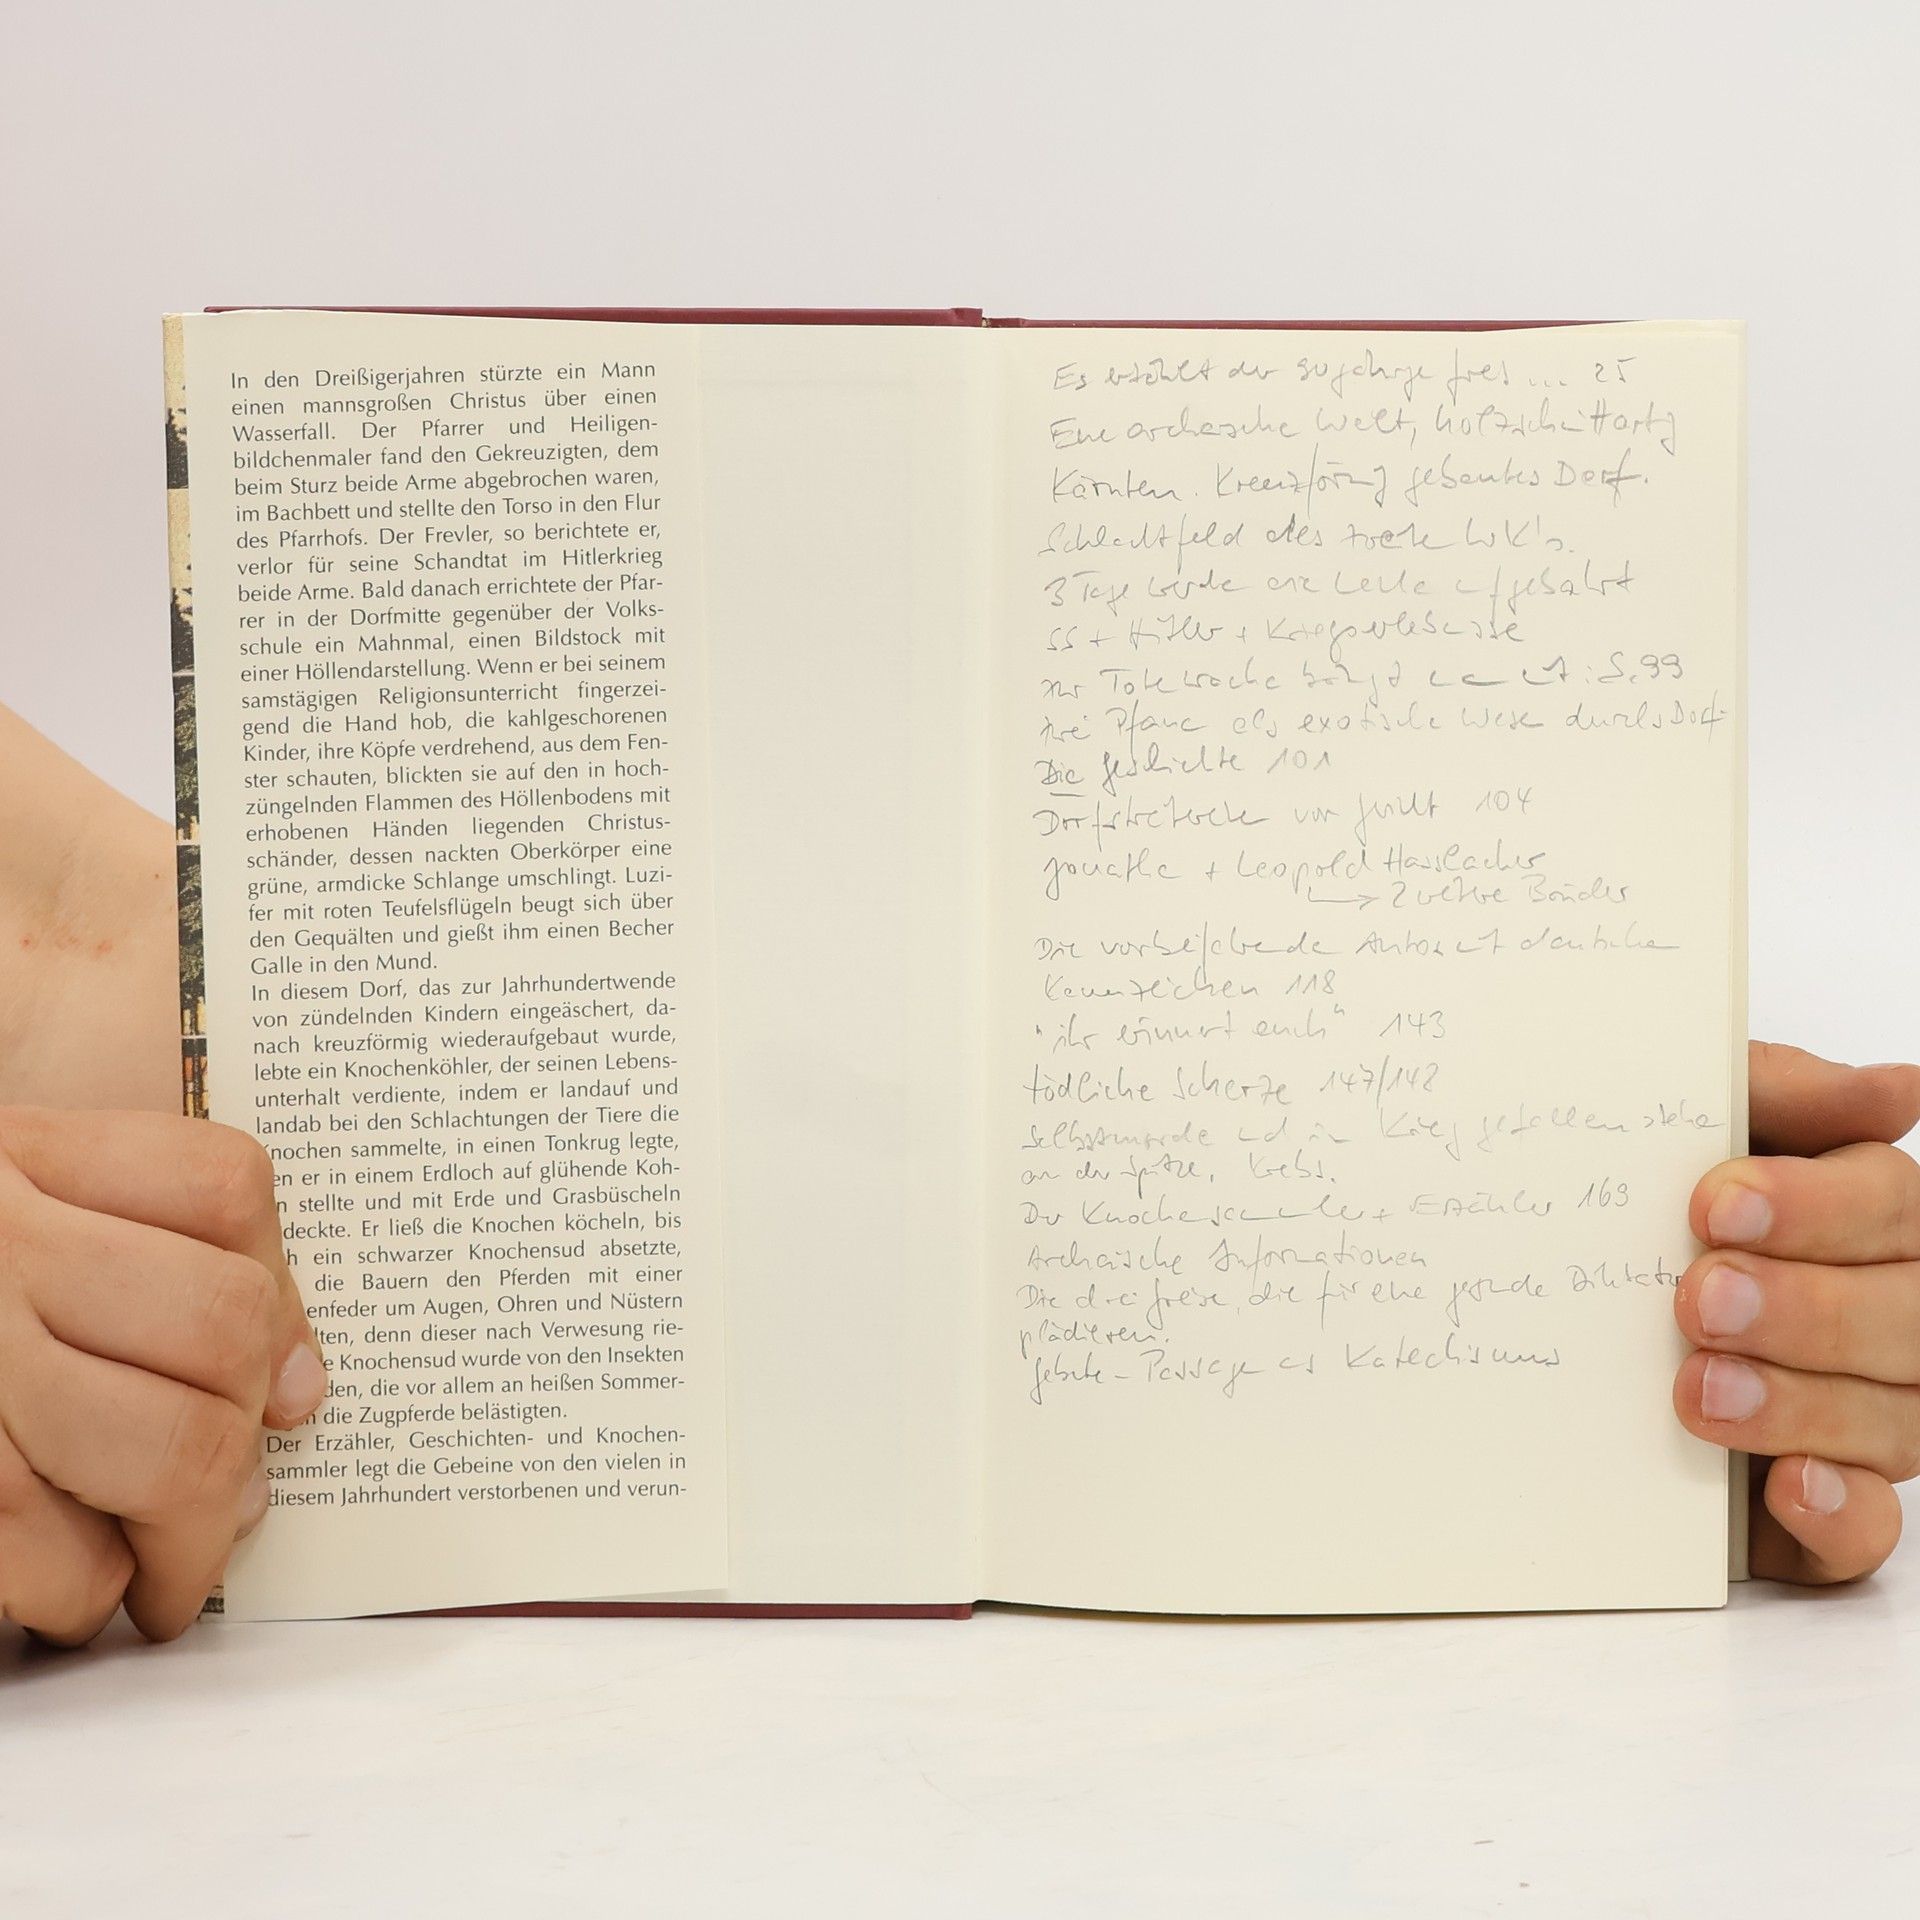 In den Dreißigerjahren stürzte ein Mann
einen mannsgroßen Christus über einen
Wasserfall. Der Pfarrer und Heiligen-
bildchenmaler fand den Gekreuzigten, dem
beim Sturz beide Arme abgebrochen waren,
im Bachbett und stellte den Torso in den Flur
des Pfarrhofs. Der Frevler, so berichtete er,
verlor für seine Schandtat im Hitlerkrieg
beide Arme. Bald danach errichtete der Pfar-
rer in der Dorfmitte gegenüber der Volks-
schule ein Mahnmal, einen Bildstock mit
einer Höllendarstellung. Wenn er bei seinem
samstägigen Religionsunterricht fingerzei-
gend die Hand hob, die kahlgeschorenen
Kinder, ihre Köpfe verdrehend, aus dem Fen-
ster schauten, blickten sie auf den in hoch-
züngelnden Flammen des Höllenbodens mit
erhobenen Händen liegenden Christus-
schänder, dessen nackten Oberkörper eine
grüne, armdicke Schlange umschlingt. Luzi-
fer mit roten Teufelsflügeln beugt sich über
den Gequälten und gießt ihm einen Becher
Galle in den Mund.
In diesem Dorf, das zur Jahrhundertwende
von zündelnden Kindern eingeäschert, da-
nach kreuzförmig wiederaufgebaut wurde,
lebte ein Knochenköhler, der seinen Lebens-
unterhalt verdiente, indem er landauf und
landab bei den Schlachtungen der Tiere die
nochen sammelte, in einen Tonkrug legte,
en er in einem Erdloch auf glühende Koh-
n stellte und mit Erde und Grasbüscheln
deckte. Er ließ die Knochen köcheln, bis
h ein schwarzer Knochensud absetzte,
die Bauern den Pferden mit einer
enfeder um Augen, Ohren und Nüstern
lten, denn dieser nach Verwesung rie-
e Knochensud wurde von den Insekten
den, die vor allem an heißen Sommer-
n die Zugpferde belästigten.
Der Erzähler, Geschichten- und Knochen-
sammler legt die Gebeine von den vielen in
diesem Jahrhundert verstorbenen und verun-
Es erzählt der 90jährige ... 25
Eine archaische Welt, holzschnittartig
Kärnten. Kreuzförmig gebautes Dorf.
Schlachtfeld des zweiten WK's.
3 Tage wurde eine Leiche aufgebahrt
SS + Hitler + Kriegserlebnisse
zur Totenwache S. 99
Pfaue als exotische Wesen durchs Dorf
Die Geschichte 101
Dorfstreitereien vor Gericht 104
Jonathan + Leopold Hasslacher
→ 2 weitere Brüder
Die vorbeifahrenden Autos mit deutschen
Kennzeichen 118
"ihr erinnert euch" 143
tödliche Scherze 147/148
Selbstmorde und im Krieg gefallen stehen
an der Spitze. Krebs.
Der Knochensammler + Erzähler 169
Archaische Informationen
Die drei Greise, die für eine gesunde Diktatur
plädieren.
Gebete - Passage aus Katechismus